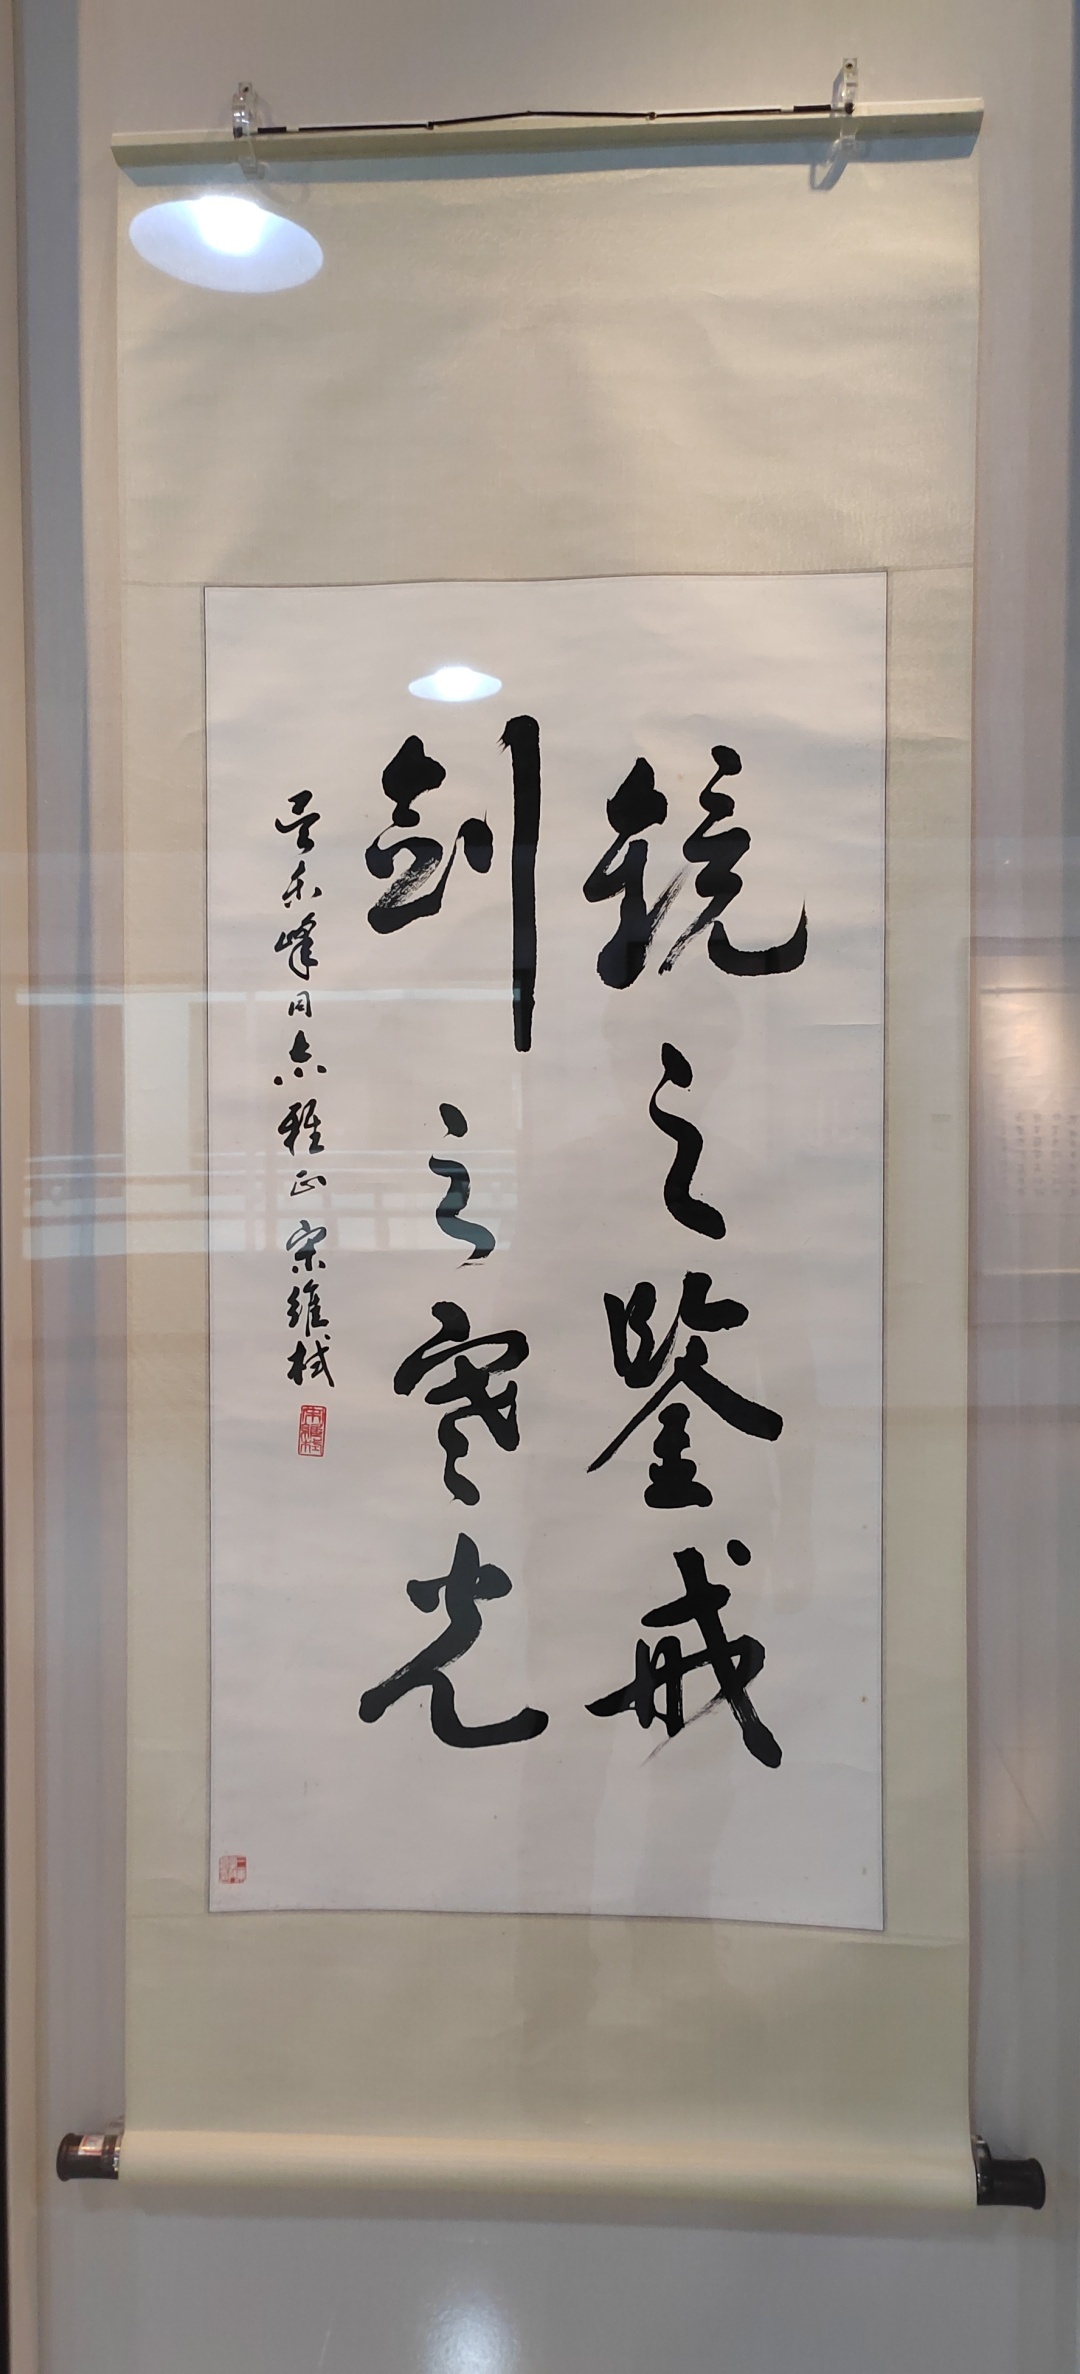 镜之鉴戒
剑之寒光
吴东峰同志雅正 宋维栻